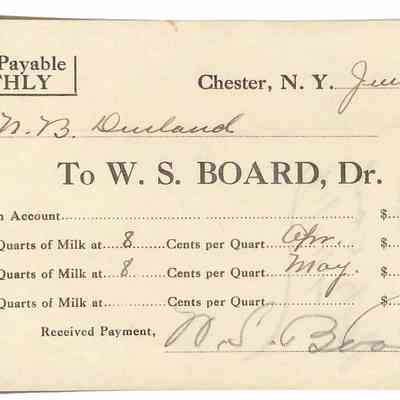 Payable
THLY
Chester, N. Y. Jun
N. B. Durland
To W. S. BOARD, Dr.
n Account $
Quarts of Milk at 8 Cents per Quart Apr. $
Quarts of Milk at 8 Cents per Quart May. $
Quarts of Milk at Cents per Quart $
Received Payment, W. S. Boa